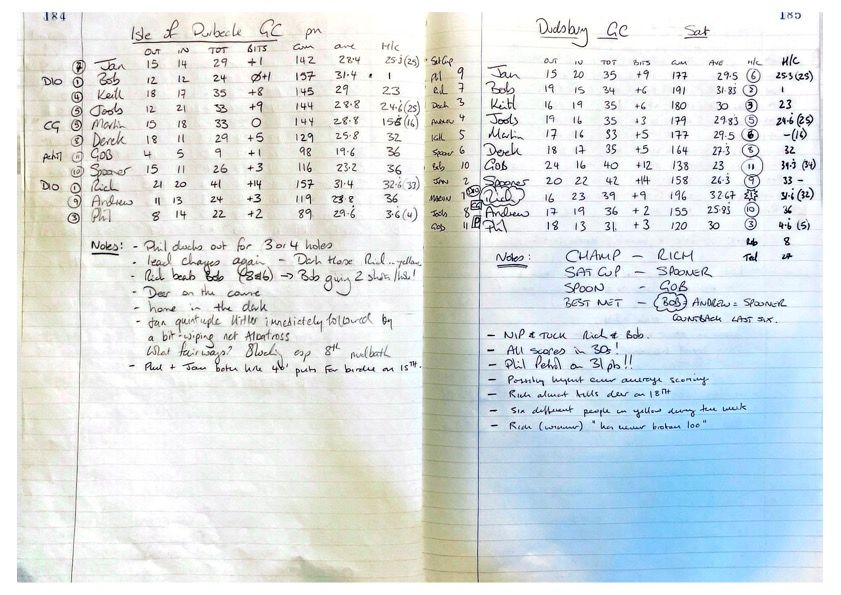 184
Isle of Purbeck GC pm
OUT IN TOT BITS CUM AVE H/C
7 Jan 15 14 29 +1 142 28.4 25.3 (25)
D10 1 Bob 12 12 24 +1 157 31.4 1
4 Keith 18 17 35 +8 145 29 23
5 Jools 12 21 33 +9 144 28.8 24.6 (25)
CG 5 Martin 15 18 33 0 144 28.8 (16)
8 Derek 18 11 29 +5 129 25.8 32
11 GOB 4 5 9 +1 98 19.6 36
10 Spooner 15 11 26 +3 116 23.2 36
D10 1 Rich 21 20 41 +14 157 31.4 32.6 (33)
9 Andrew 11 13 24 +3 119 23.8 36
3 Phil 8 14 22 +2 89 29.6 3.6 (4)
Notes: - Phil ducks out for 3 or 4 holes
- Lead changes again - Dark Horse Rich in yellow
- Rich beats Bob → Bob giving 2 shots/hole!
- Deer on the course
- home in the dark
- Jan quintuple hitler immediately followed by
a bit-wiping net Albatross
- What fairways? Bloody esp 8th mudbath
- Phil + Jan both hole 40' putts for birdie on 15TH.
185
Dudsbury GC Sat
Sat Cup OUT IN TOT BITS CUM AVE H/C H/C
Phil 9 Jan 15 20 35 +9 177 29.5 6 25.3 (25)
Rich 7 Bob 19 15 34 +6 191 31.83 2 1
Derek 3 Keith 16 19 35 +6 180 30 3 23
Andrew 4 Jools 19 16 35 +3 179 29.83 5 24.6 (25)
Keith 5 Martin 17 16 33 +5 177 29.5 6 - (16)
Spooner 6 Derek 18 17 35 +5 164 27.3 8 32
Bob 10 GOB 24 16 40 +12 138 23 11 34.3 (34)
Jan 2 Spooner 20 22 42 +14 158 26.3 9 33 -
Martin 1 Rich 16 23 39 +9 196 32.67 31.6 (32)
Jools 8 Andrew 17 19 36 +2 155 25.83 10 36
GOB 11 Phil 18 13 31 +3 120 30 3 4.6 (5)
Rob 8
Ted 27
Notes: CHAMP - RICH
SAT CUP - SPOONER
SPOON - GOB
BEST NET - BOB = ANDREW = SPOONER
COUNTBACK LAST SIX.
- NIP & TUCK Rich & Bob.
- All scores in 30s!
- Phil Petrol on 31 pts!!
- Possibly highest ever average scoring
- Rich almost kills deer on 18TH
- Six different people in yellow during the week
- Rich (winner) "has never broken 100"